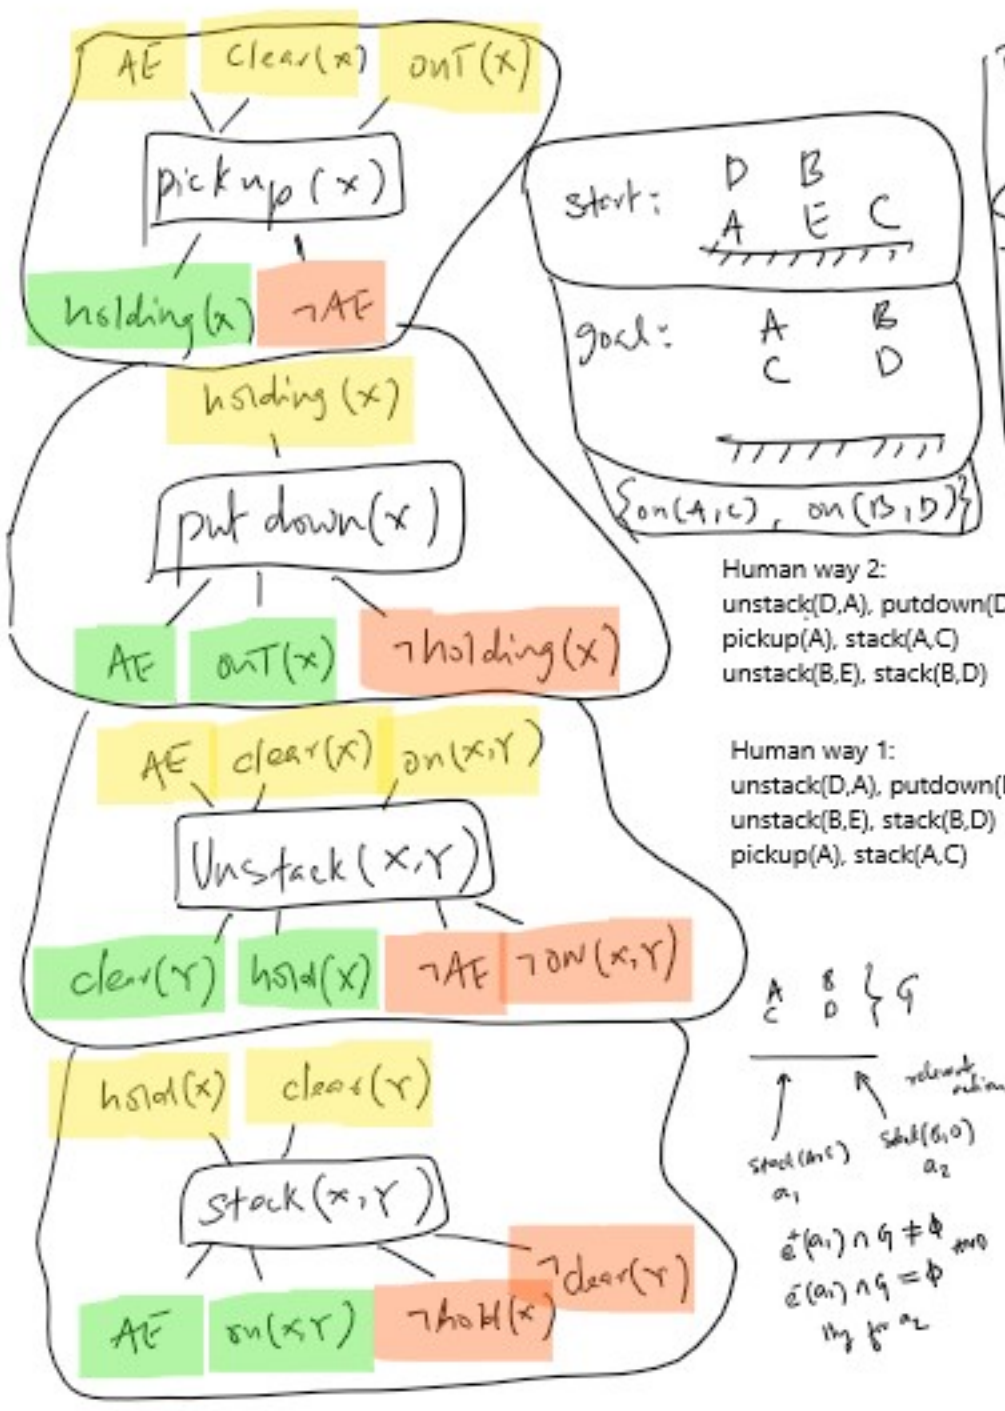 AE clear(x) onT(x)
pickup(x)
holding(x) ¬AE
holding(x)
putdown(x)
AE onT(x) ¬holding(x)
AE clear(x) on(x,Y)
Unstack(x,Y)
clear(Y) hold(x) ¬AE ¬on(x,Y)
hold(x) clear(Y)
stack(x,Y)
AE on(x,Y) ¬hold(x) ¬clear(Y)
start: D B
A E C
goal: A B
C D
{on(A,C), on(B,D)}
Human way 2:
unstack(D,A), putdown(D
pickup(A), stack(A,C)
unstack(B,E), stack(B,D)
Human way 1:
unstack(D,A), putdown(
unstack(B,E), stack(B,D)
pickup(A), stack(A,C)
A B } G
C D
relevant
stack(A,C) stack(B,D)
a₁ a₂
e⁺(a₁) ∩ G ≠ ϕ
e⁻(a₁) ∩ G = ϕ
for a₂